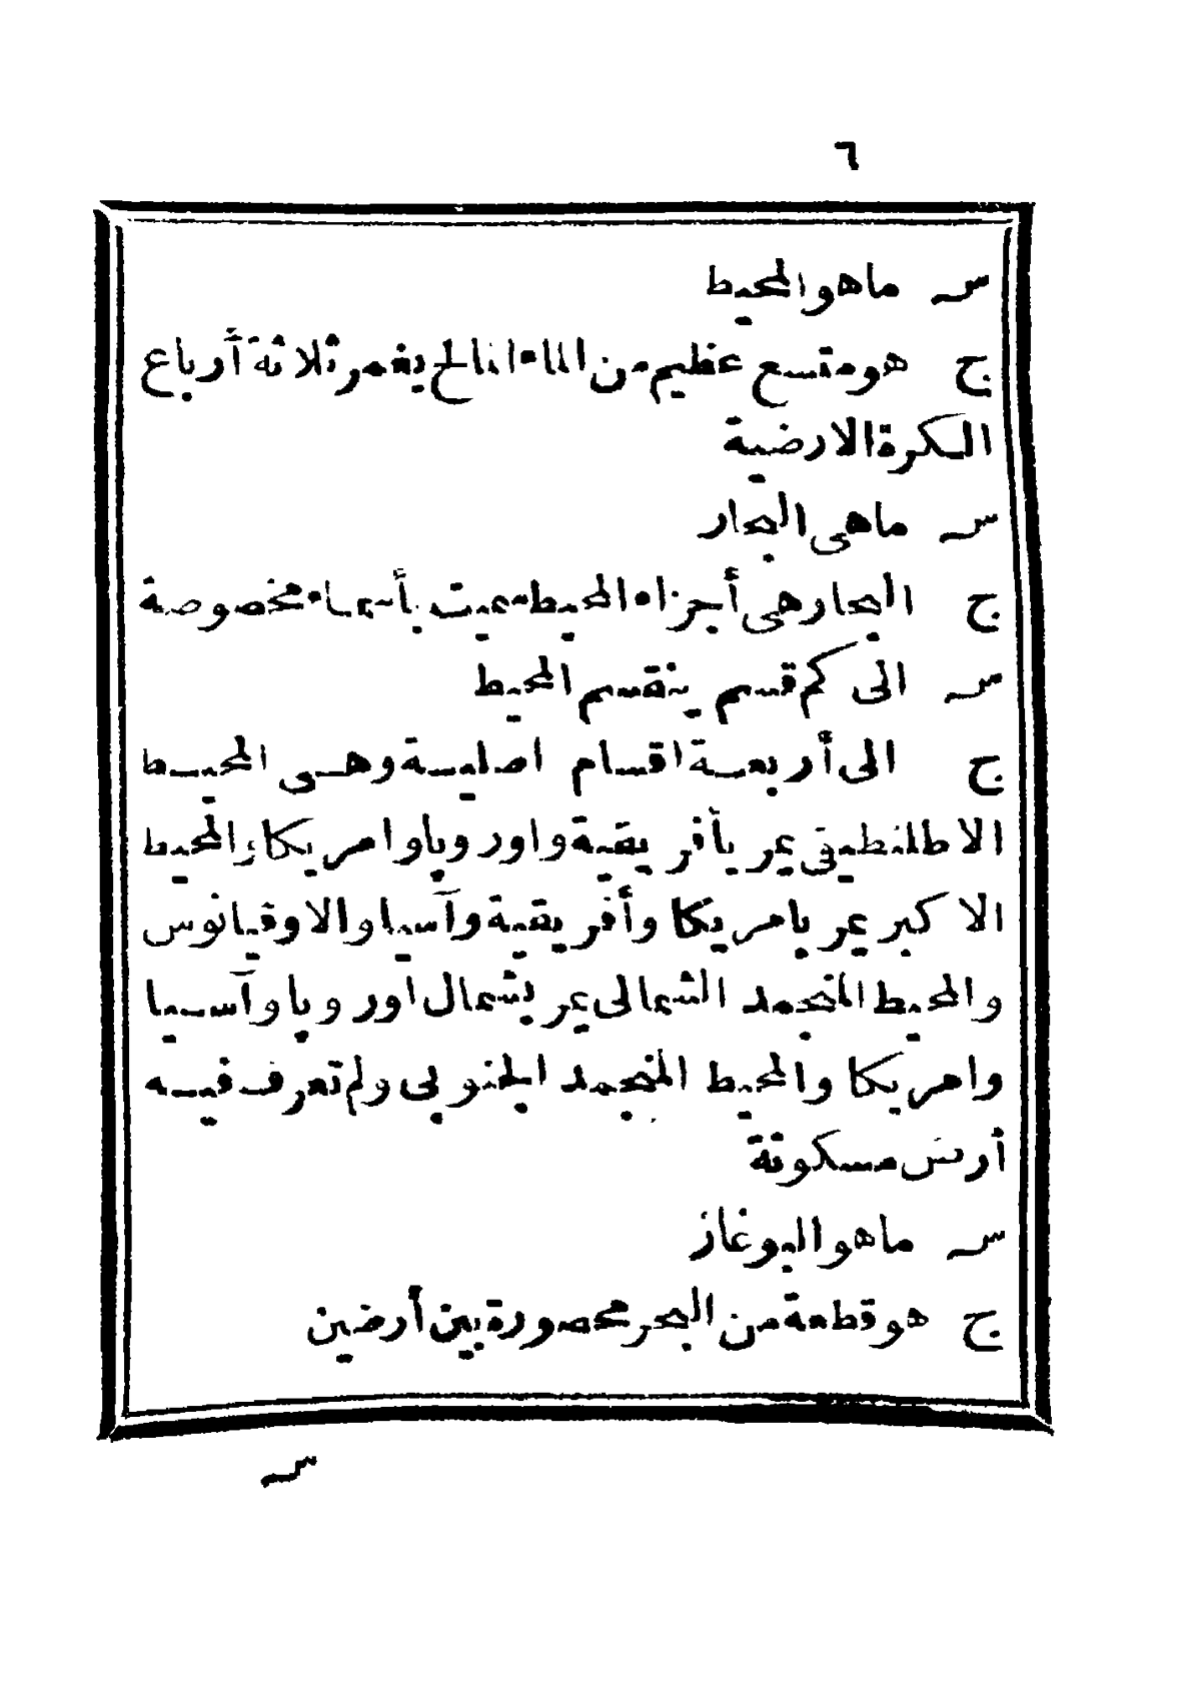 ٦
س ما هو المحيط
ج هو متسع عظيم من الماء المالح يغمر ثلاثة أرباع
الكرة الارضية
س ما هى البحار
ج البحار هى أجزاء المحيط سميت بأسماء مخصوصة
س الى كم قسم ينقسم المحيط
ج الى أربعة اقسام اصلية وهى المحيط
الاطلنطيقى يمر بأفريقية واوروپا وامريكا والمحيط
الاكبر يمر بامريكا وأفريقية وآسيا والاوقيانوس
والمحيط المنجمد الشمالى يمر بشمال اوروپا وآسيا
وامريكا والمحيط المنجمد الجنوبى ولم تعرف فيه
أرض مسكونة
س ما هو البوغاز
ج هو قطعة من البحر محصورة بين أرضين
س